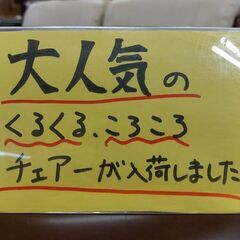 大人気の
くるくる、ころころ
チェアーが入荷しました